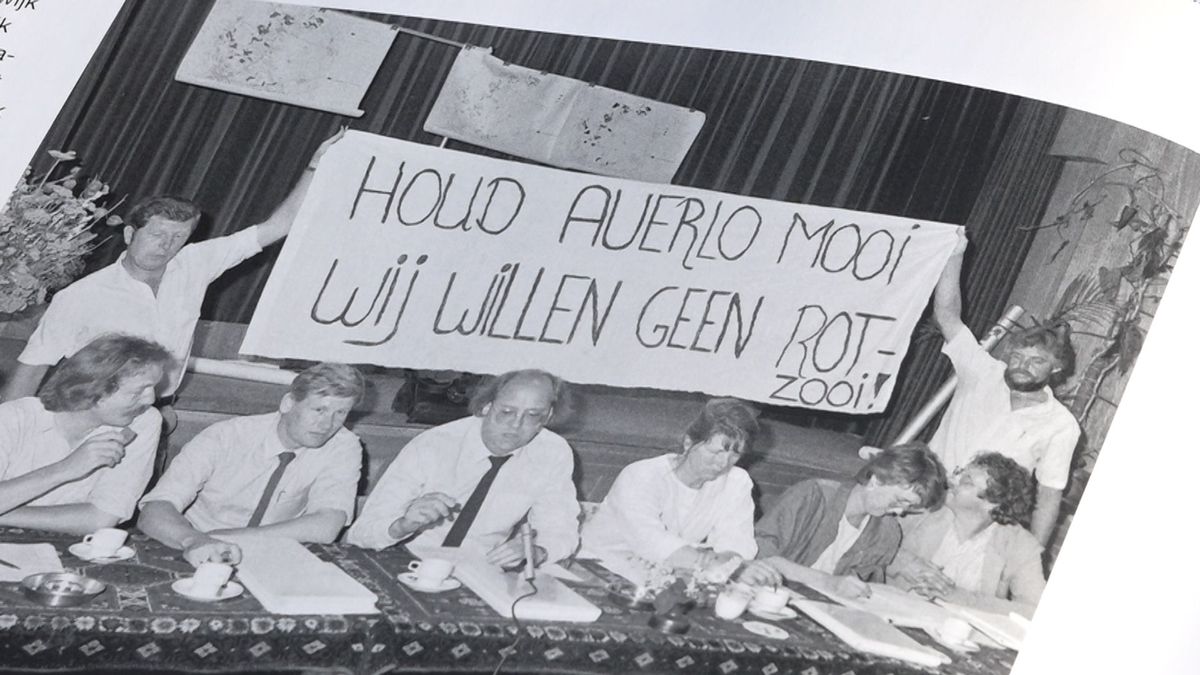 HOUD AVERLO MOOI
WIJ WILLEN GEEN ROT-
ZOOI!